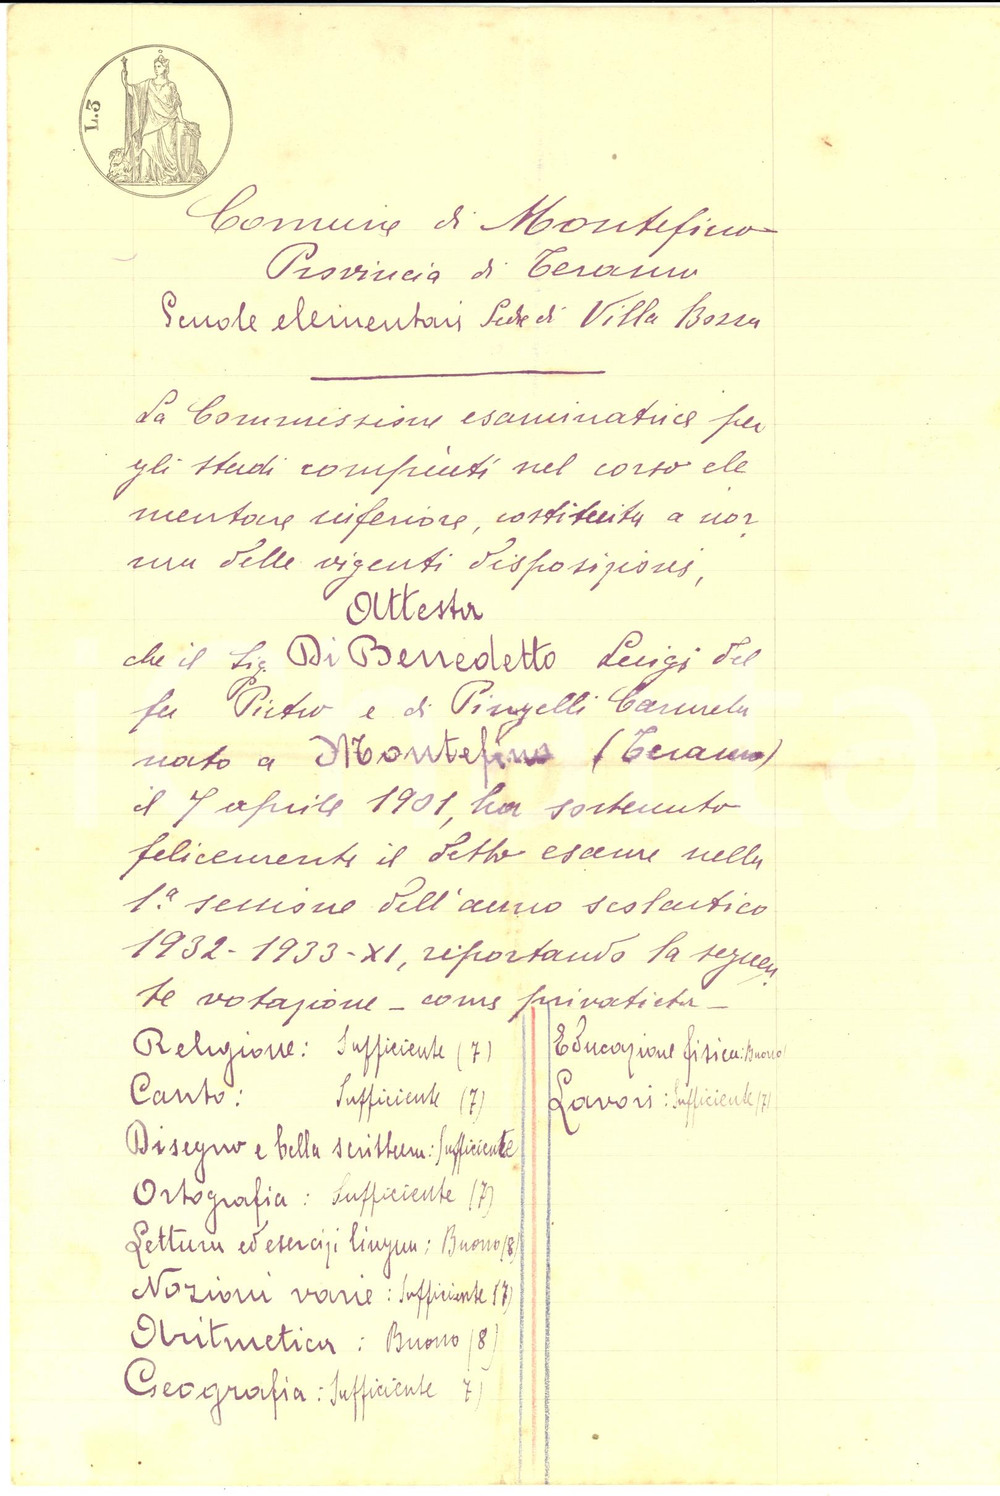 L.3
Comune di Montefino
Provincia di Teramo
Scuole elementari Sede di Villa Bozza
La Commissione esaminatrice per
gli studi compiuti nel corso ele
mentare inferiore, costituita a nor
ma delle vigenti disposizioni,
Attesta
che il Sig. Di Benedetto Luigi del
fu Pietro e di Pingelli Carmela
nato a Montefino (Teramo)
il 7 aprile 1901, ha sostenuto
felicemente il detto esame nella
1.a sessione dell'anno scolastico
1932-1933-XI, riportando la seguen
te votazione - come privatista -
Religione: Sufficiente (7)
Canto: Sufficiente (7)
Disegno e bella scrittura: Sufficiente
Ortografia: Sufficiente (7)
Lettura ed esercizi lingua: Buono (8)
Nozioni varie: Sufficiente (7)
Aritmetica: Buono (8)
Geografia: Sufficiente 7)
Educazione fisica: Buono
Lavori: Sufficiente (7)